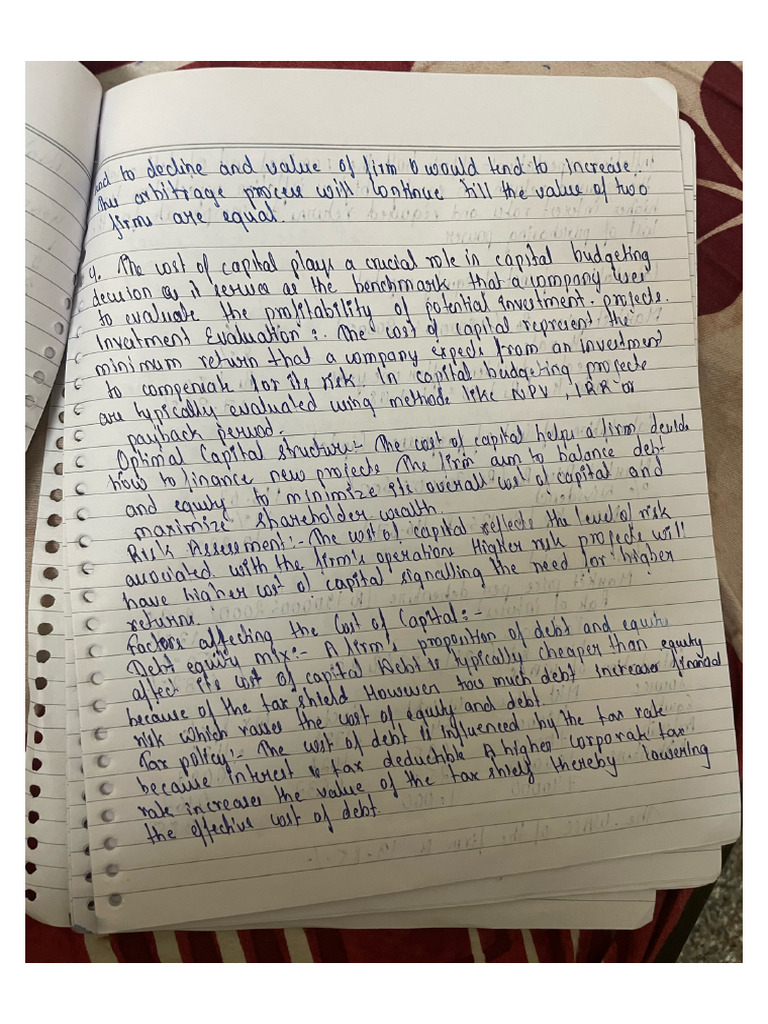 end to decline and value of firm U would tend to increase.
Thus arbitrage process will continue till the value of two
firms are equal.
4. The cost of capital plays a crucial role in capital budgeting
decision as it serves as the benchmark that a company uses
to evaluate the profitability of potential investment projects.
Investment Evaluation :- The cost of capital represent the
minimum return that a company expects from an investment
to compensate for its risk In capital budgeting projects
are typically evaluated using methods like NPV, IRR or
payback period.
Optimal Capital structure:- The cost of capital helps a firm decide
how to finance new projects The firm aim to balance debt
and equity to minimize its overall cost of capital and
maximize shareholder wealth.
Risk Assessment:- The cost of capital reflects the level of risk
associated with the firm's operations Higher risk projects will
have higher cost of capital signalling the need for higher
returns.
Factors affecting the Cost of Capital:-
Debt equity mix:- A firm's proposition of debt and equity
affect its cost of capital Debt is typically cheaper than equity
because of the tax shield However too much debt increases financial
risk which raises the cost of equity and debt.
Tax policy:- The cost of debt is influenced by the tax rate
because interest is tax deductible A higher corporate tax
rate increases the value of the tax shield thereby lowering
the effective cost of debt.